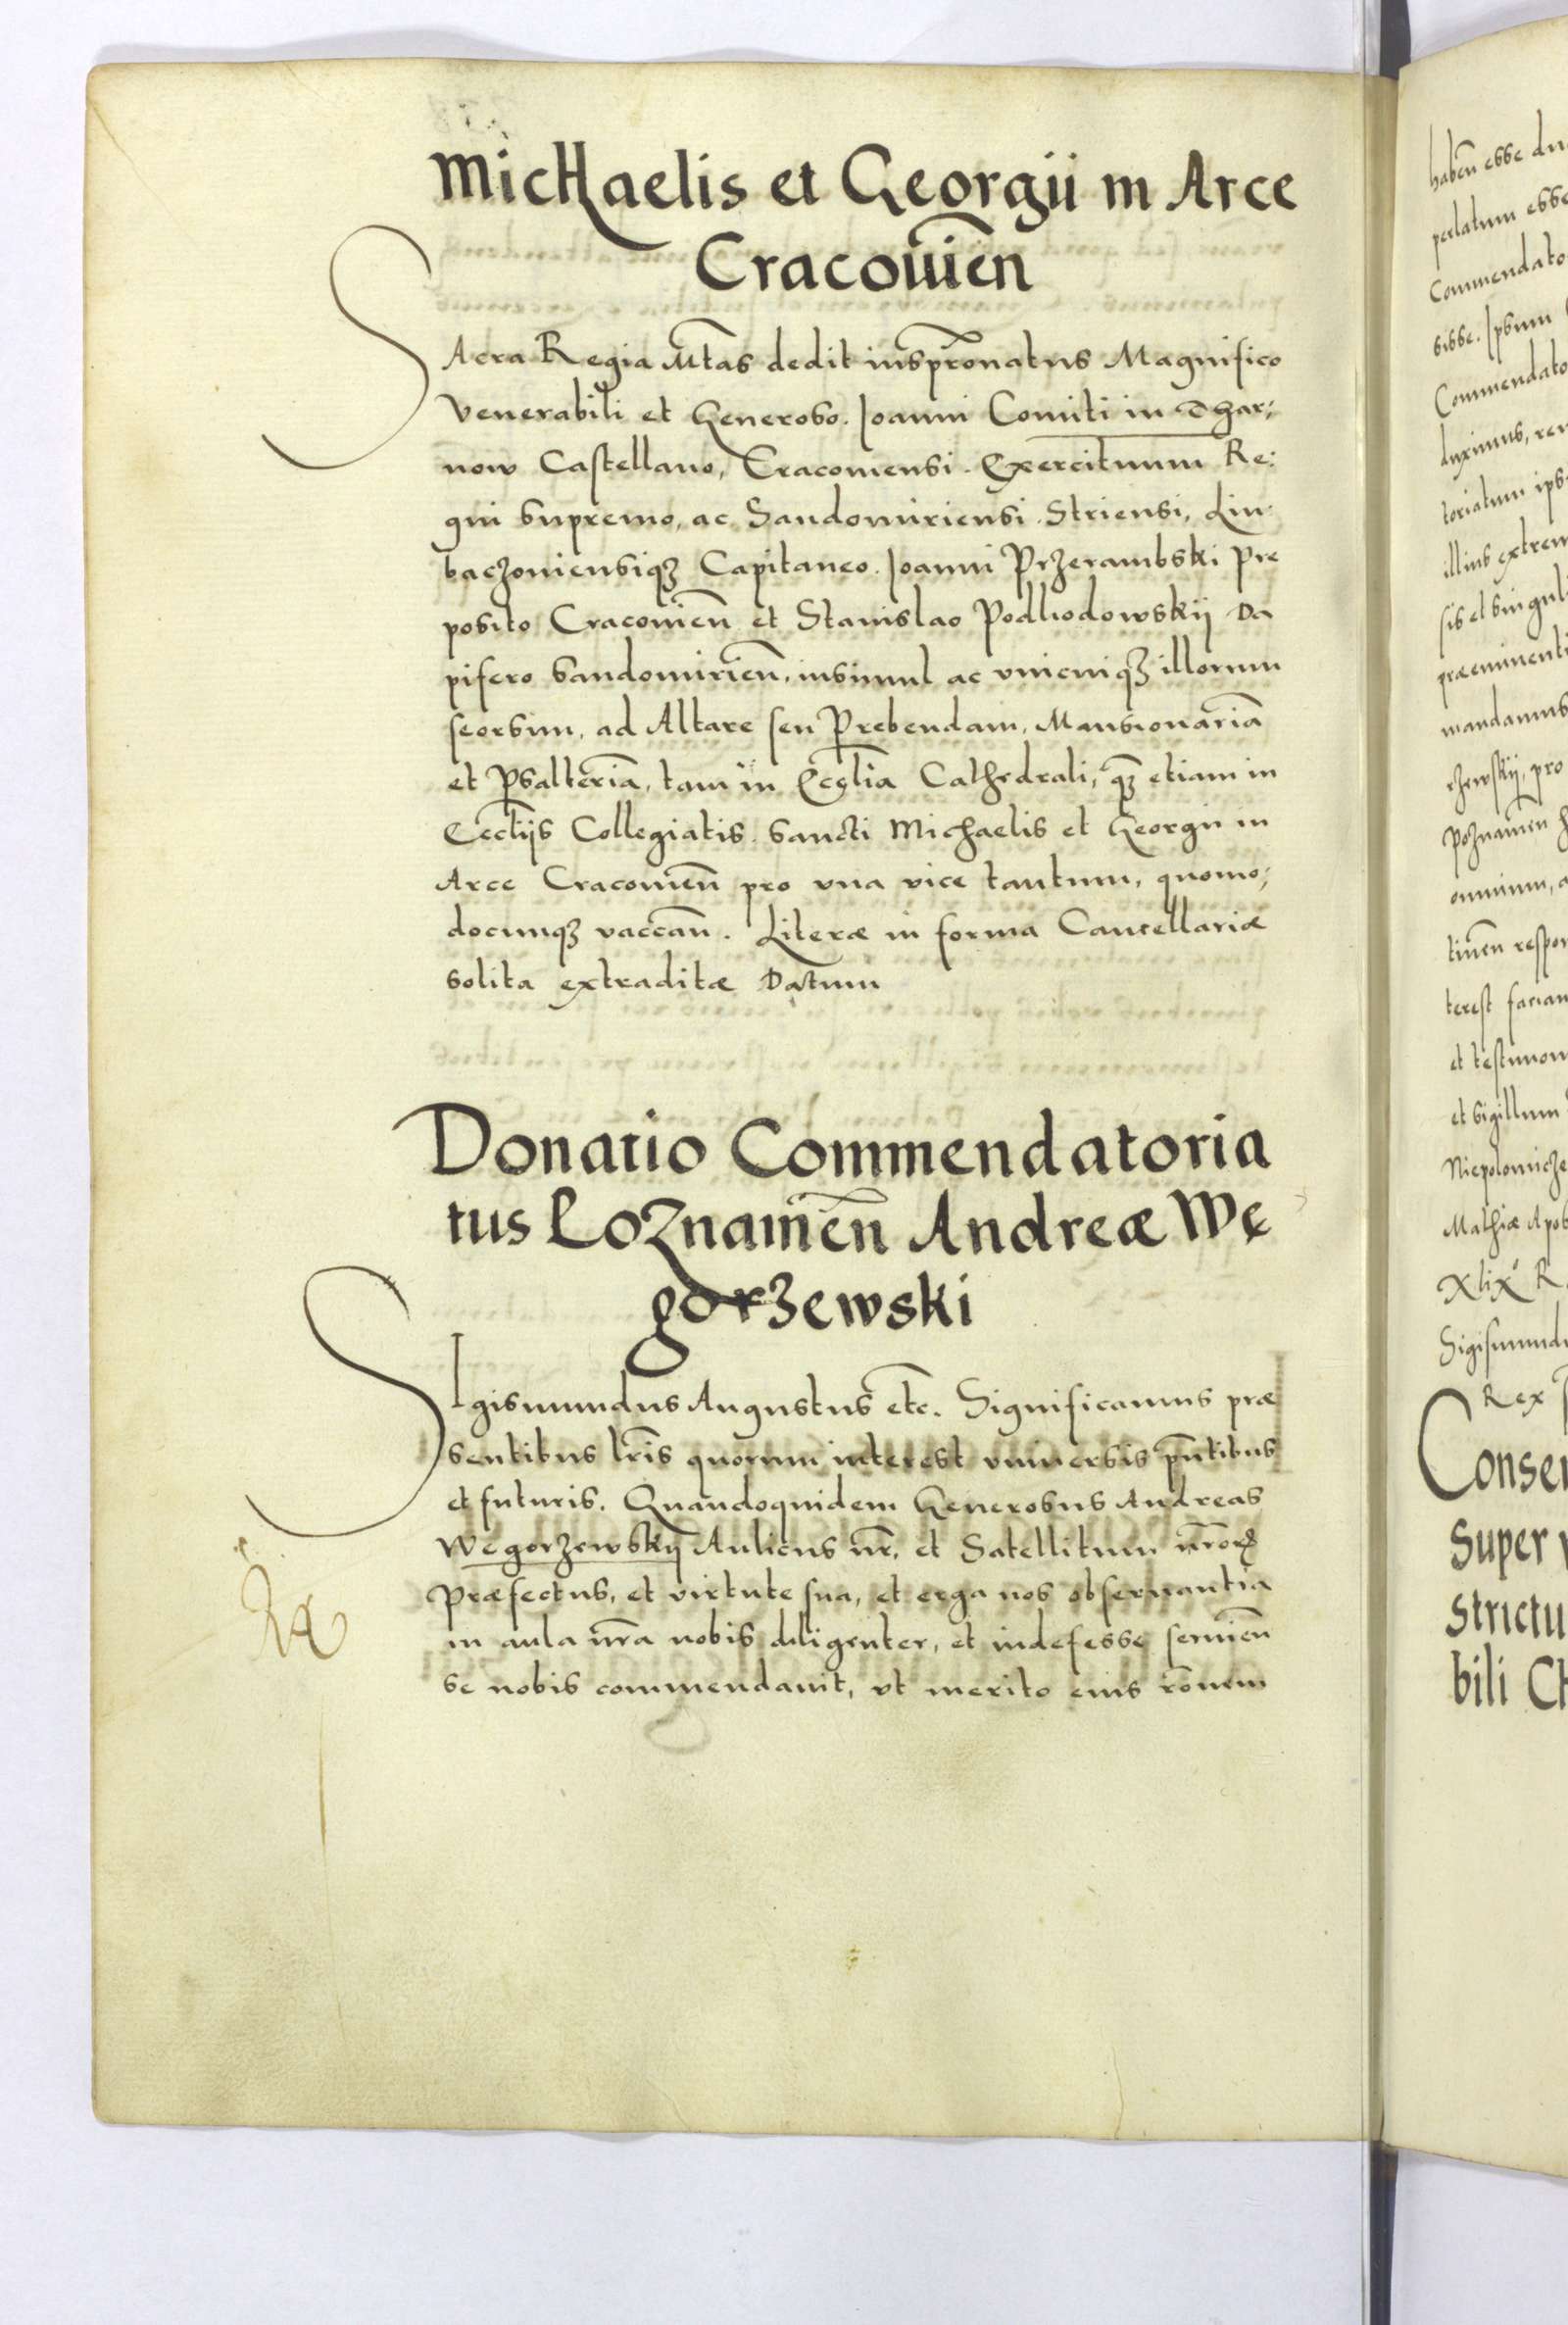 MicHaelis et Georgii in Arce
Cracouien̄
SAcra Regia M̃tas dedit iusp̃ronatus Magnifico
Venerabili et Generoso. Joanni Comiti in Thar:
now Castellano, Cracouiensi. Exercituum Re:
gni supremo, ac Sandomiriensi. Striensi, Liu:
baczouiensiqꝫ Capitaneo. Joanni Przerambski Pre
posito Cracouien̄ et Stanislao Podlodowskij Da
pifero Sandomirien̄, insimul ac vnicuiqꝫ illorum
seorsim, ad Altare seu Prebendam, Mansionariã
et Psalteriã, tam in Ecc̃lia Cathedrali, qꝫ etiam in
Ecc̃lijs Collegiatis. Sancti Michaelis et Georgii in
Arce Cracouien̄ pro vna vice tantum, quomo:
documqꝫ vaccan̄. Literæ in forma Cancellariæ
solita extraditæ Datum
Donatio Commendatoria
tus Poznamen̄ Andreæ Wę
gorzewski
SIgismundus Augustus etc. Significamus præ
sentibus lr̃is quorum interest vniuersis pñtibus
et futuris. Quandoquidem Generosus Andreas
Węgorzewskij Aulicus nr̃, et Satellitum nr̃orꝝ
Præfectus, et virtute sua, et erga nos obseruantia
in aula nr̃a nobis diligenter, et indefesse seruien̄
se nobis commendauit, vt merito eius rõnem
haben̄ esse du
perlatum esse
Commendato
sisse. Ipsum
Commendato
duximus, ren
toriatum ips
illius extrem
sis et singul
præeminenti
mandamus
rzewskij, pro
Poznamen̄
omnium, a
tinen̄ respon
terest facian
et testimon
et sigillum
Niepolomicze
Mathiæ Apos
Xlix R
Sigismund
Rex
Consen
super
strictu
bili CH